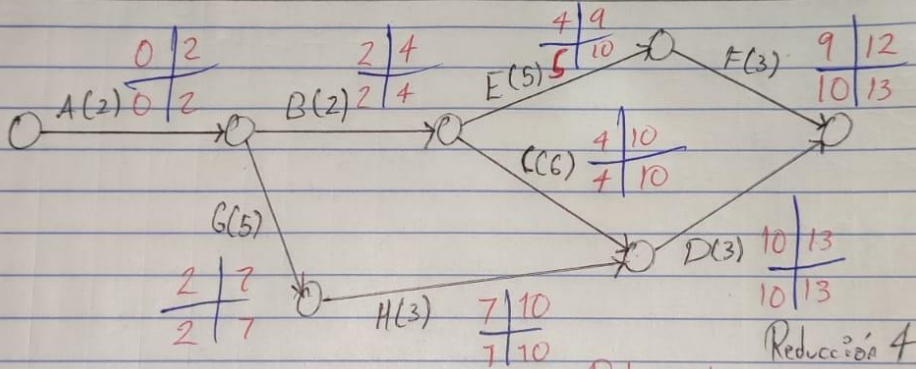 0 2
0 2
A(2)
2 4
2 4
B(2)
4 9
5 10
E(5)
F(3)
9 12
10 13
C(6)
4 10
4 10
G(5)
2 7
2 7
H(3)
7 10
7 10
D(3)
10 13
10 13
Reducción 4